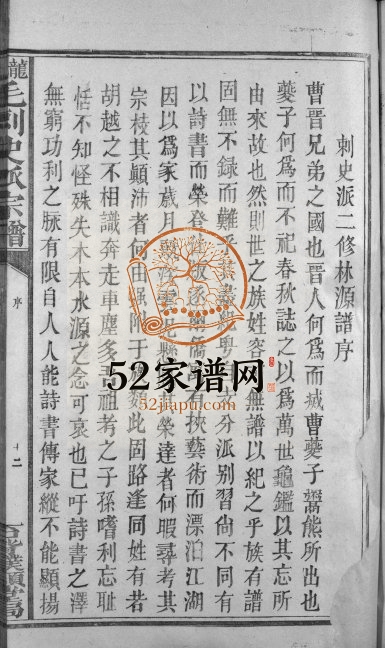 刺史派二修林源譜序
曹晉兄弟之國也晉人何為而城曹夔子鬻熊所出也
夔子何為而不祀春秋誌之以為萬世龜鑑以其忘所
由來故也然則世之族姓容 無譜以紀之乎族有譜
固無不錄而難 分派别習尚不同有
以詩書而榮登 有挾藝術而漂泊江湖
因以為家歲月 其榮達者何暇尋考其
宗枝其顛沛者何由強附于 此固路逢同姓有若
胡越之不相識奔走車塵多 祖考之子孫嗜利忘耻
恬不知怪殊失木本水源之念可哀也已吁詩書之澤
無窮功利之脈有限自人人能詩書傳家縱不能顯揚
龍 毛刺史派宗譜
序
十二
52家谱网
52jiapu.com